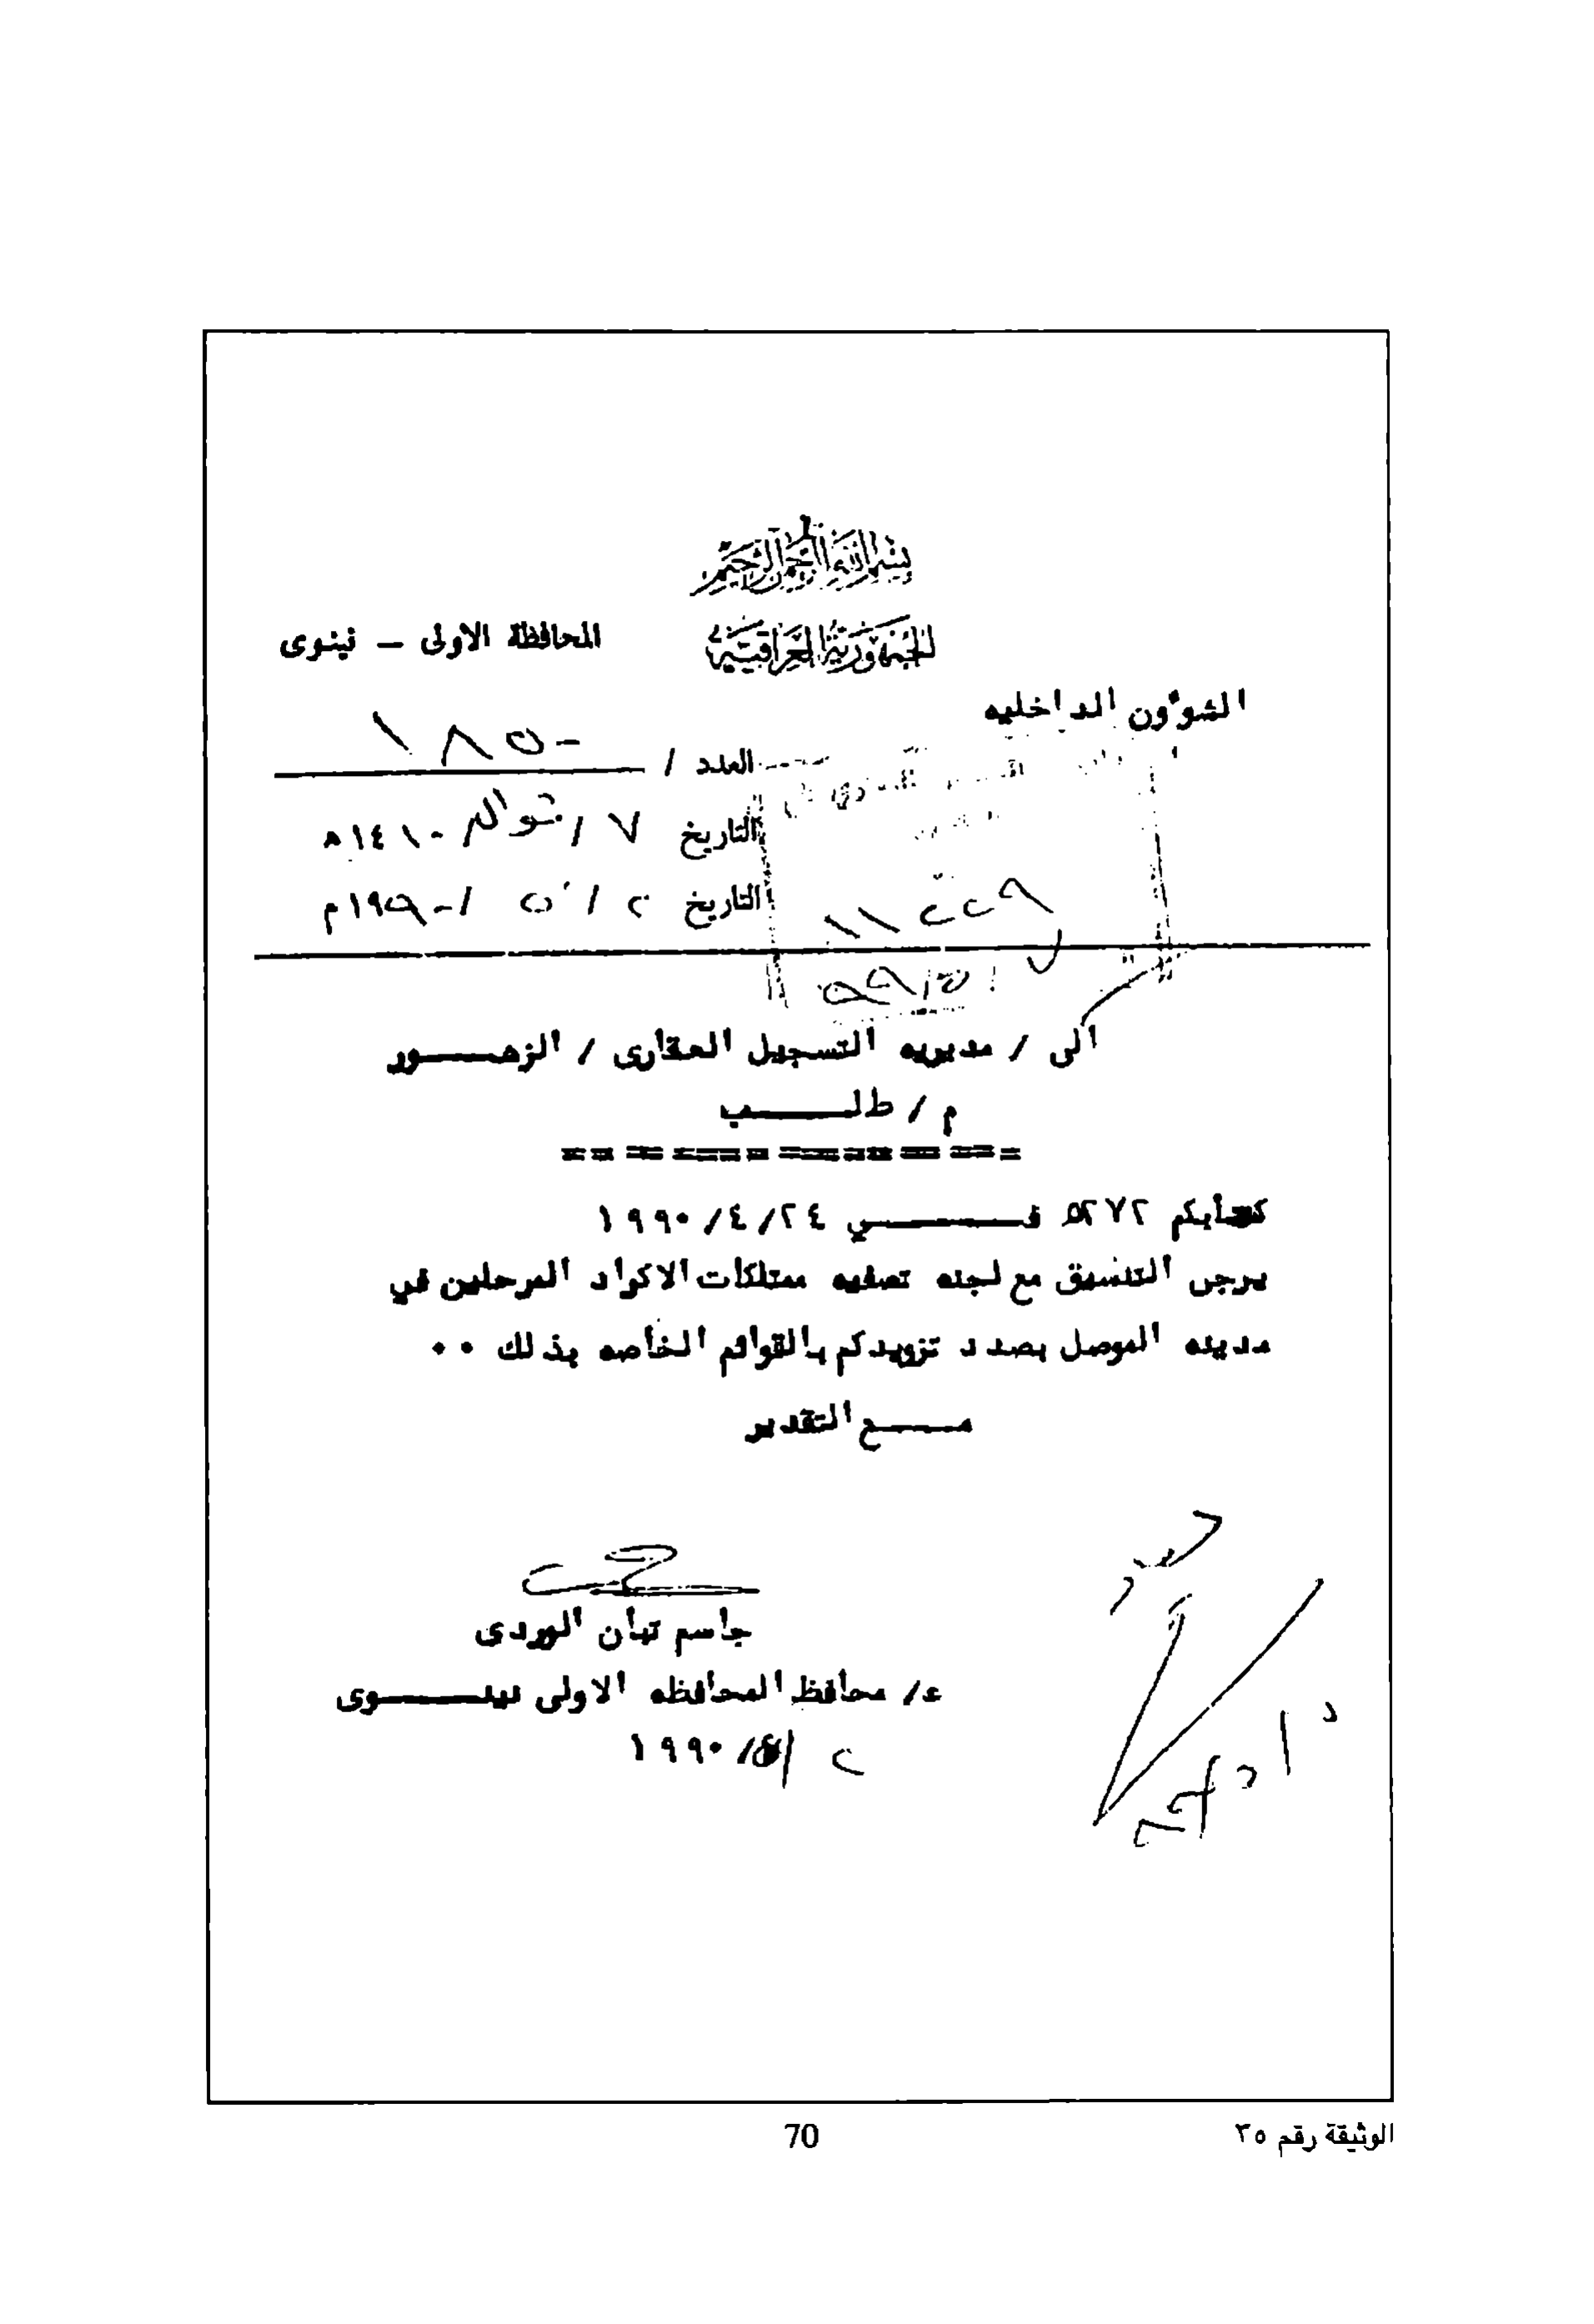 بسم الله الرحمن الرحيم
الجمهورية العراقية
المحافظة الاولى - نينوى
الشوٴون الداخليه
العدد / ١٨٥٠
التاريخ ٧ / شوال / ١٤١٠هـ
التاريخ ٢ / ٥ / ١٩٩٠م
الى / مديريه التسجيل العقارى / الزهـــور
م / طلـــب
كتابكم ٥٢٧٢ فـــي ١٩٩٠/٤/٢٤
يرجى التنسيق مع لجنه تصفيه ممتلكات الاكراد المرحلين في
مدينه الموصل بصدد تزويدكم بالقوائم الخاصه بذلك ٠٠
مـــع التقدير
جاسم
ع/ محافظ المحافظه الاولى نينـــوى
٢ /٥/ ١٩٩٠
الوثيقة رقم ٣٥
70